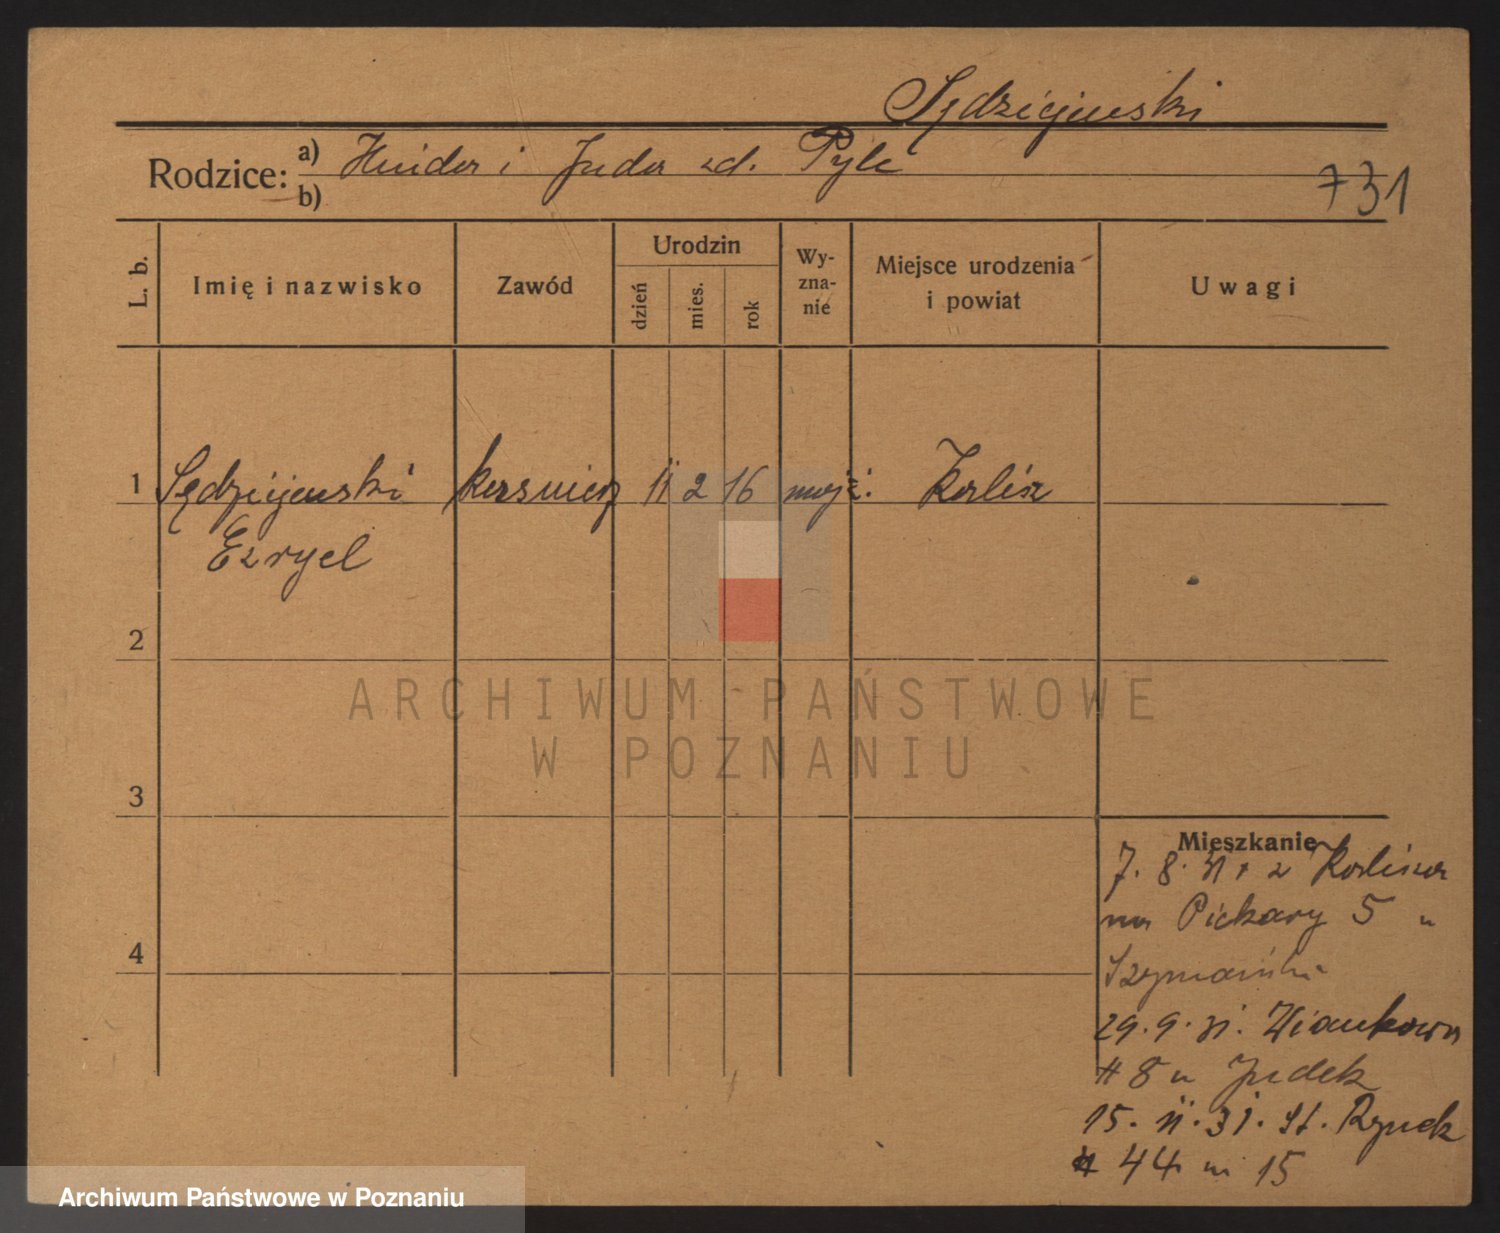 Sędziejewski
Rodzice: a) Hinda i Juda zd. Pyle
b)
731
L. b.
Imię i nazwisko
Zawód
Urodzin
dzień
mies.
rok
Wy-
zna-
nie
Miejsce urodzenia
i powiat
Uwagi
1 Sędziejewski kasznierz 11 2 16 mojż. Kalisz
Ezryel
2
3
4
Mieszkanie
7. 8. 31 r z Kalisza
na Piekary 5 u
Szymański
29. 9. 31. Wiankowa
# 8 u Judek
15. 11. 31. St. Rynek
# 44 m 15
ARCHIWUM PAŃSTWOWE
W POZNANIU
Archiwum Państwowe w Poznaniu